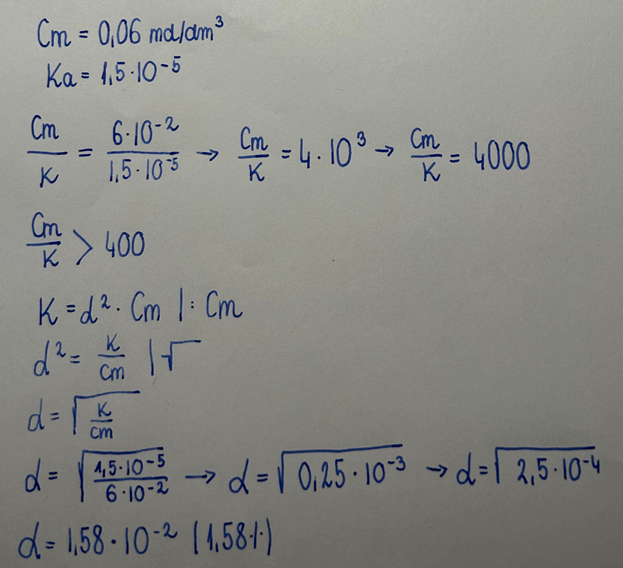 Cm = 0,06 mol/dm³
Ka = 1,5·10⁻⁵
Cm/K = 6·10⁻²/1,5·10⁻⁵ → Cm/K = 4·10³ → Cm/K = 4000
Cm/K > 400
K = d²· Cm |: Cm
d² = K/Cm |√
d = √(K/Cm)
d = √(1,5·10⁻⁵/6·10⁻²) → d = √(0,25·10⁻³) → d = √(2,5·10⁻⁴)
d = 1,58·10⁻² (1,58%)